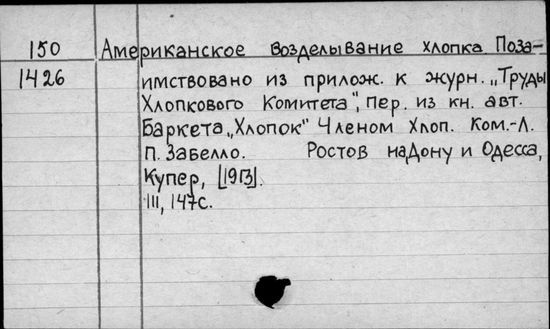 150 Американское возделывание хлопка Поза-
1426 имствовано из прилож. к журн. „Труды
Хлопкового Комитета", пер. из кн. авт.
Баркета „Хлопок" Членом Хлоп. Ком.-Л.
П. Забелло. Ростов на Дону и Одесса,
Купер, [1913].
III, 147с.